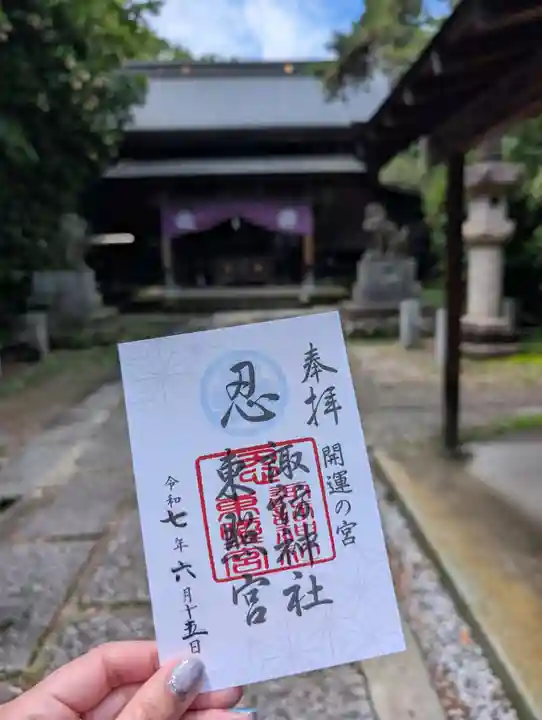 奉拝
開運の宮
忍
諏訪神社
東照宮
令和七年六月十五日